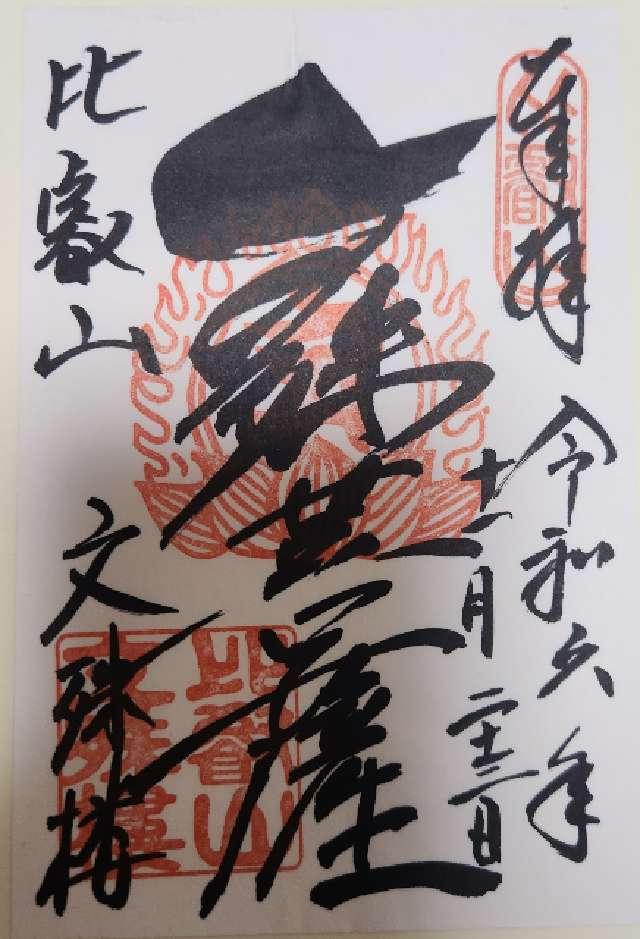 奉拝
比叡山
令和六年
十一月二十三日
文殊菩薩
比叡山
文殊樓
比叡山
文殊樓